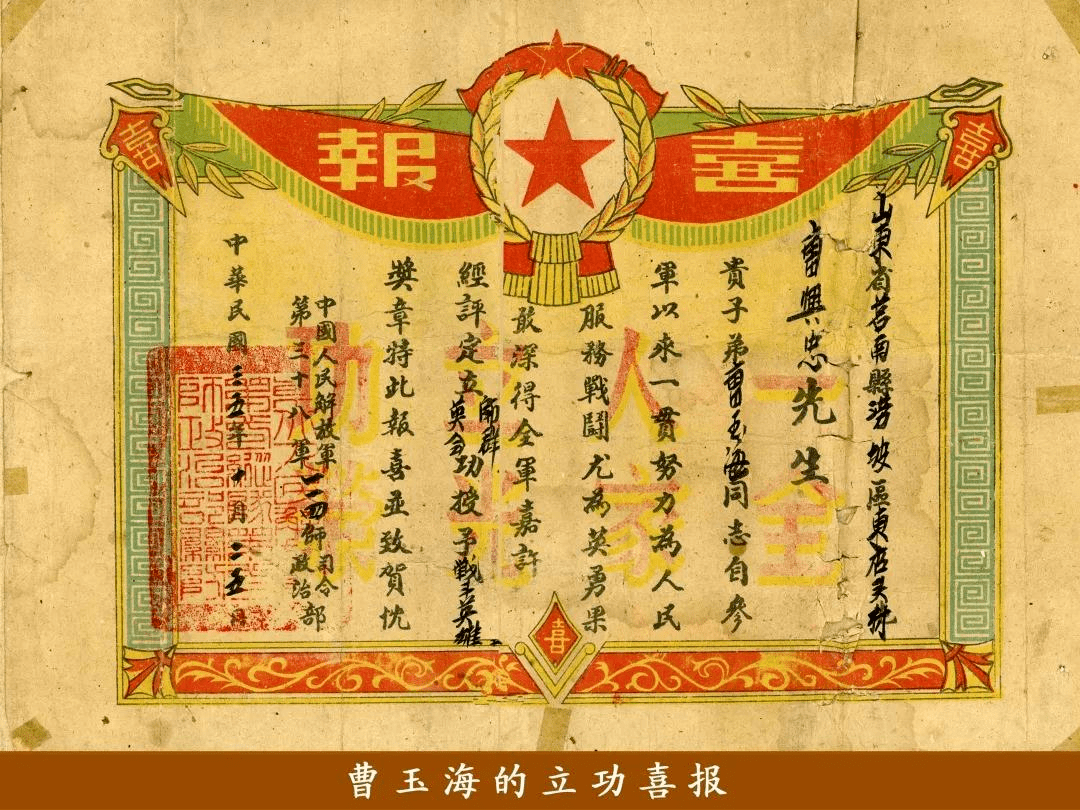 喜報
喜
喜
山東省莒南縣澇坡區東店头村
曹興忠先生
貴子弟曹玉海同志自參
軍以來一貫努力為人民
服務戰鬪尤為英勇果
敢深得全軍嘉許
經評定立師群英会功授予戰斗英雄
獎章特此報喜並致賀忱
中國人民解放軍
第三十八軍一一四師司令
政治部
中華民國三五年十月二五日
一人立功
全家光榮
喜
曹玉海的立功喜报